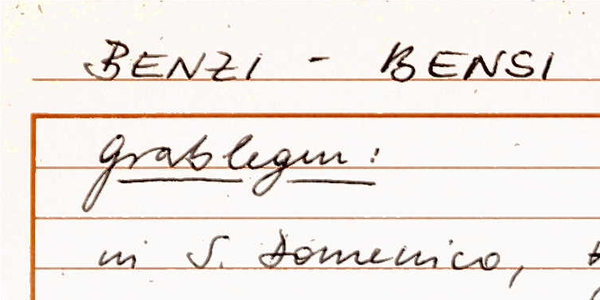 BENZI - BENSI
Grablegen:
in S. Domenico,